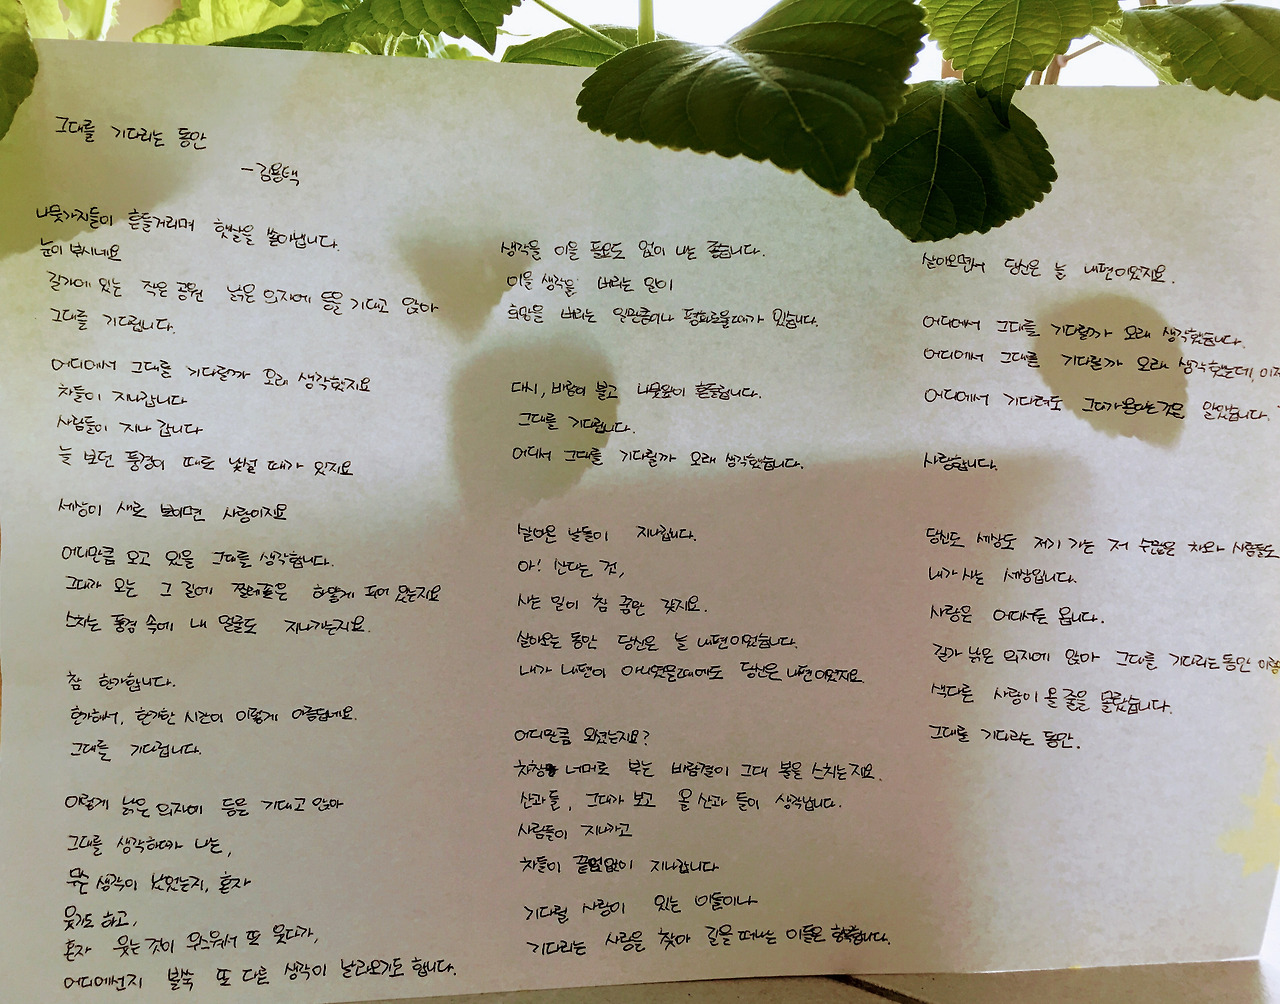 그대를 기다리는 동안
- 김용택
나뭇가지들이 흔들거리며 햇살을 쏟아냅니다.
눈이 부시네요
길가에 있는 작은 공원 낡은 의자에 등을 기대고 앉아
그대를 기다립니다.
어디에서 그대를 기다릴까 오래 생각했지요
차들이 지나갑니다
사람들이 지나 갑니다
늘 보던 풍경이 때로 낯설 때가 있지요
세상이 새로 보이면 사랑이지요
어디만큼 오고 있을 그대를 생각합니다.
그대가 오는 그 길에 찔레꽃은 하얗게 피어 있는지요
스치는 풍경 속에 내 얼굴도 지나가는지요.
참 한가합니다.
한가해서, 한가한 시간이 이렇게 아름답네요.
그대를 기다립니다.
이렇게 낡은 의자에 등을 기대고 앉아
그대를 생각하다가 나는,
무슨 생각이 났었는지, 혼자
웃기도 하고,
혼자 웃는 것이 우스워서 또 웃다가,
어디에선지 불쑥 또 다른 생각이 날아오기도 합니다.
생각을 이을 필요도 없이 나는 좋습니다.
이을 생각을 버리는 일이
희망을 버리는 일만큼이나 평화로울때가 있습니다.
다시, 바람이 불고 나뭇잎이 흔들립니다.
그대를 기다립니다.
어디서 그대를 기다릴까 오래 생각했습니다.
살아온 날들이 지나갑니다.
아! 산다는 것,
사는 일이 참 꿈만 같지요.
살아오는 동안 당신은 늘 내편이었습니다.
내가 내편이 아니었을때에도 당신은 내편이었지요.
어디만큼 오셨는지요?
차창 너머로 부는 바람결이 그대 볼을 스치는지요.
산과 들, 그대가 보고 올 산과 들이 생각납니다.
사람들이 지나가고
차들이 끝없이 지나갑니다
기다릴 사랑이 있는 이들이나
기다리는 사랑을 찾아 길을 떠나는 이들은 행복합니다.
살아오면서 당신은 늘 내편이었지요.
어디에서 그대를 기다릴까 오래 생각했습니다.
어디에서 그대를 기다릴까 오래 생각했는데, 이제
어디에서 기다려도 그대가 온다는것을 알았습니다.
사랑합니다.
당신도 세상도 저기 가는 저 수많은 차와 사람들도
내가 사는 세상입니다.
사랑은 어디서든 옵니다.
길가 낡은 의자에 앉아 그대를 기다리는 동안 이렇
색다른 사랑이 올 줄을 몰랐습니다.
그대를 기다리는 동안.